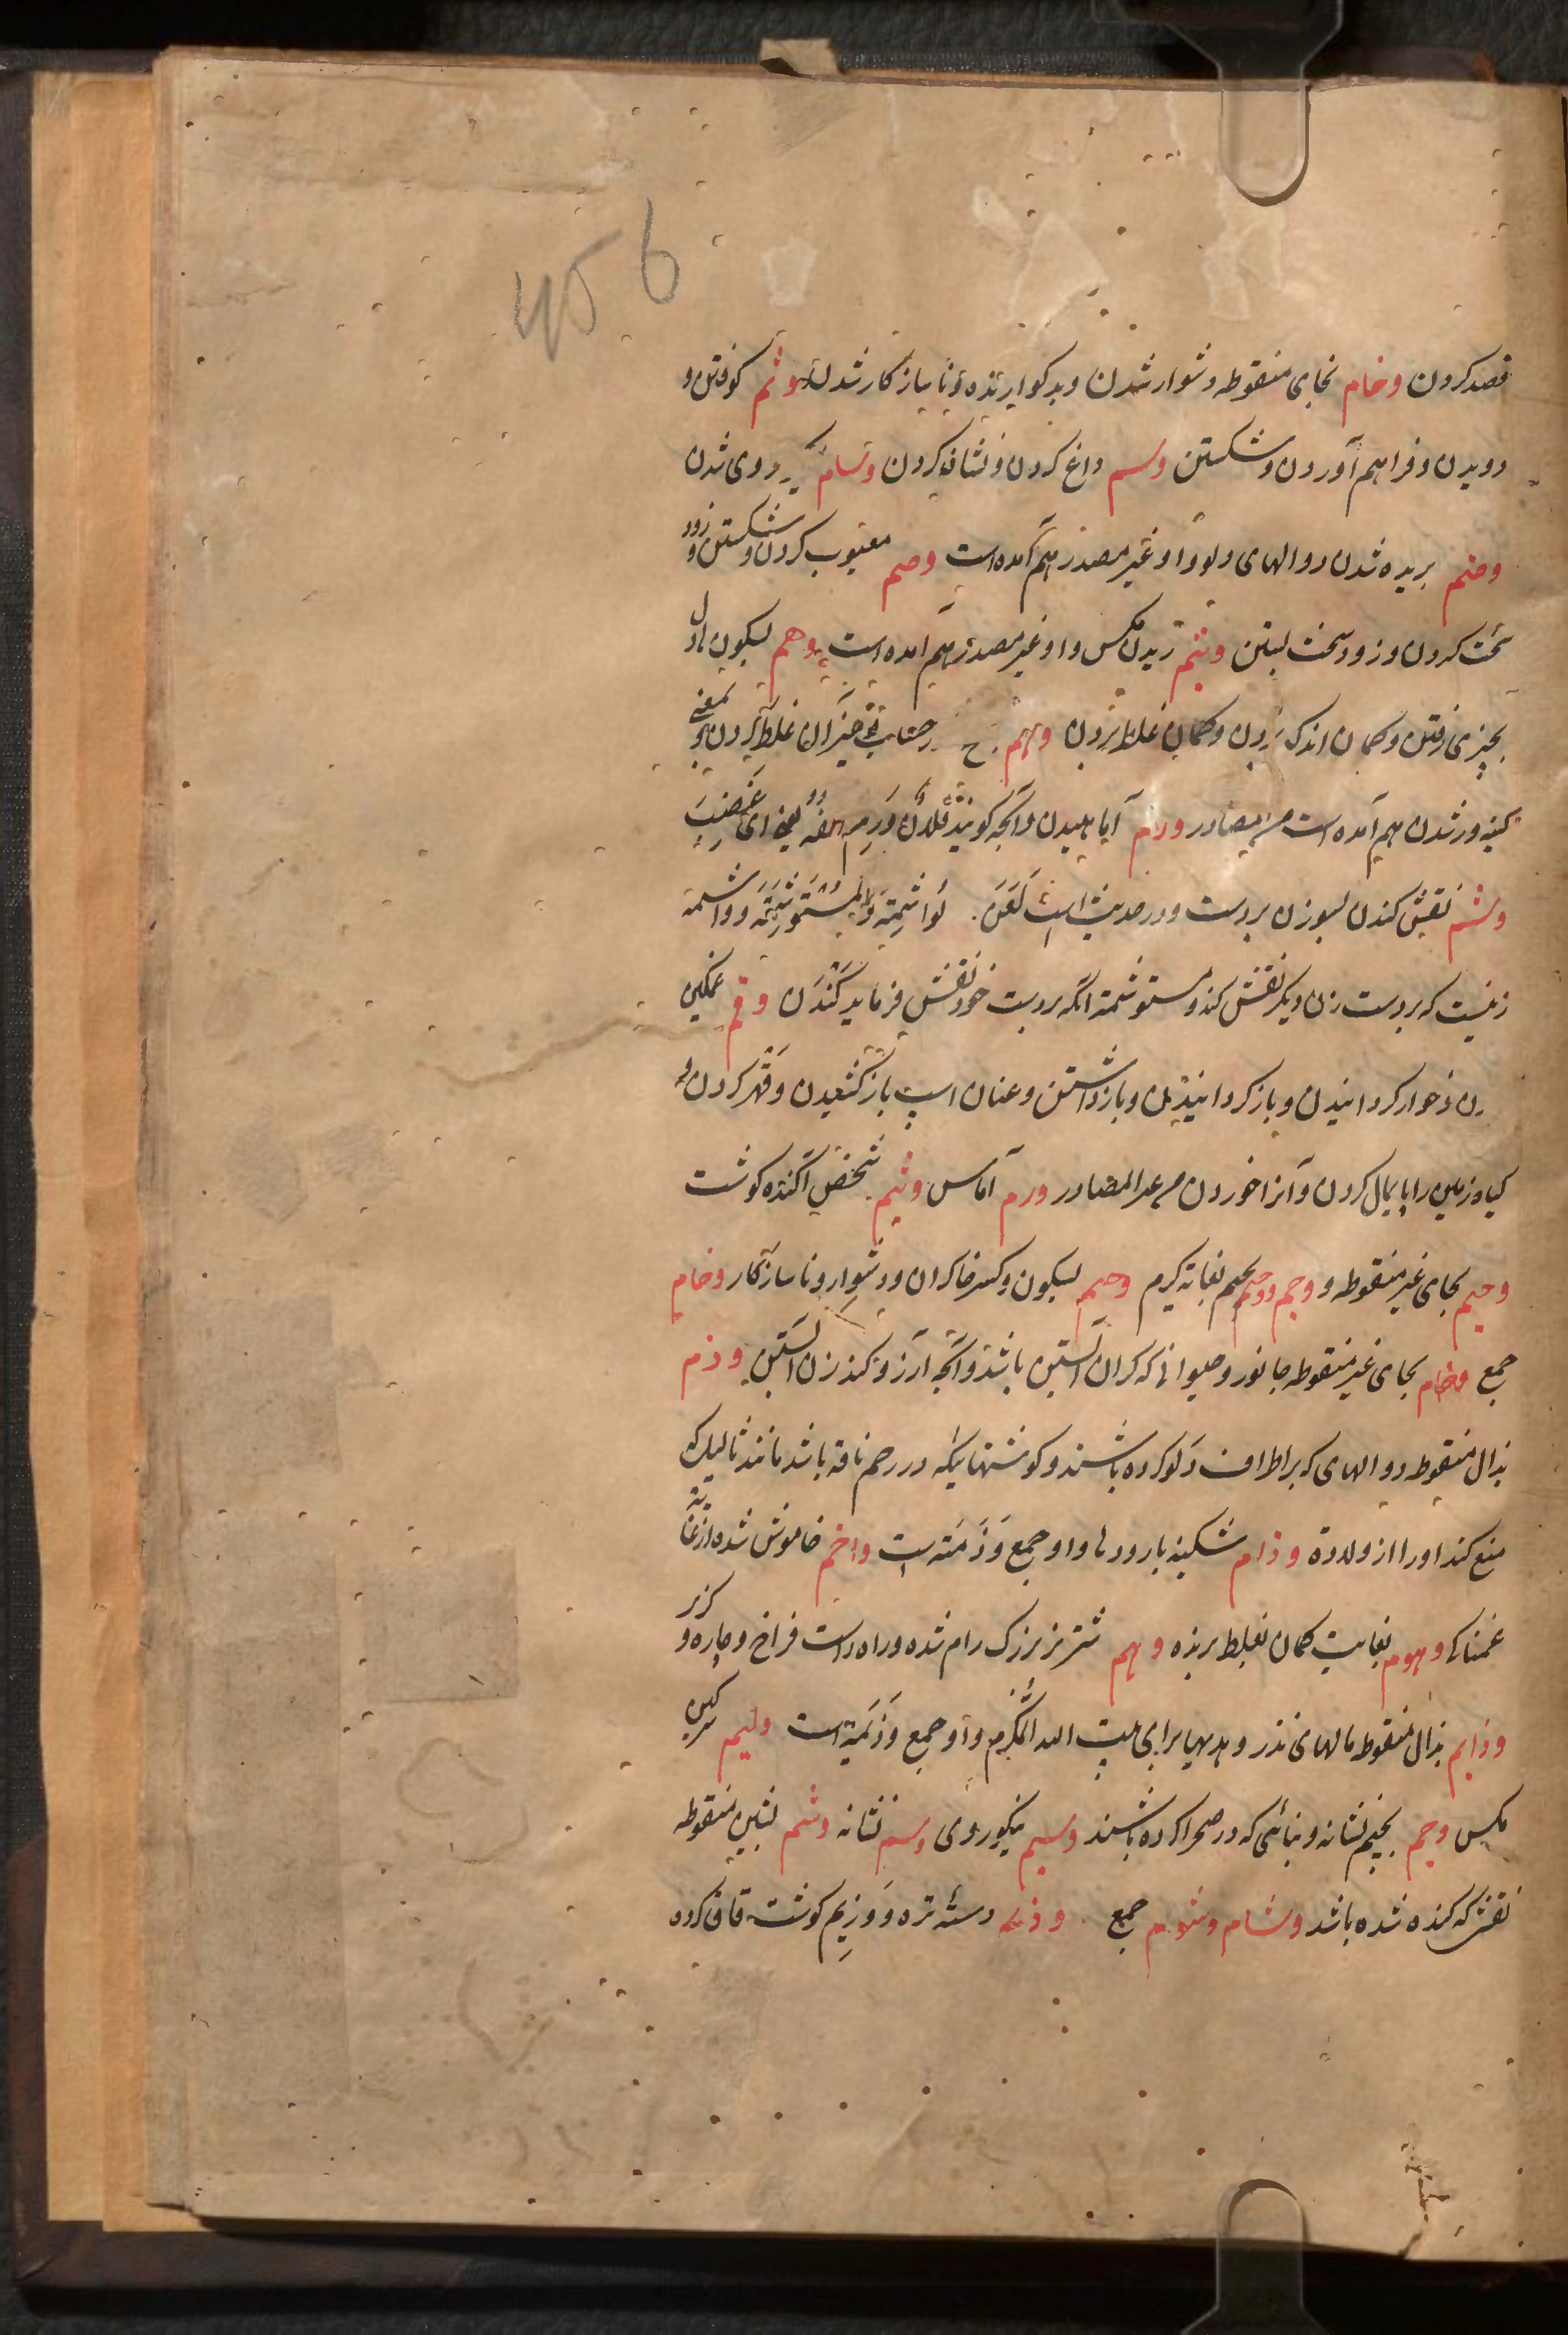 456
قصد کردن وخام بخای منقوطه دشوار شدن وبد کوارنده ونا ساز کار شدن وثم کوفتن و
دویدن وفراهم آوردن وشکستن وسم داغ کردن ونشانه کردن وسام نیکو روی شدن
وضم بریده شدن دوالهای دلو واو غیر مصدر هم آمده است وصم معیوب کردن وشکستن وزود
سخت کردن وزود سخت بستن ونیم ریدن مکس واو غیر مصدر هم آمده است وهم بسکون ها دل
بچیزی رفتن وکمان اندک بردن وکمان غلط بردن وهم در حساب چیزان غلط کردن وبمعنی
کینه ور شدن هم آمده است من المصادر ورم آماهیدن وآنچه کویند فلان ورم انفه یعنی ای غضب
وشم نقش کندن بسوزن بر دست ودر حدیث است لعن الواشمة والمستوشمة وواشمة
زنیست که بر دست زن دیکر نقش کند ومستوشمة آنکه بر دست خود نقش فرماید کندن وقم غمکین
کردن وخوار کردانیدن وباز کردانیدن وباز داشتن وعنان اسپ باز کشیدن وقهر کردن و
کیاه زمین را پایمال کردن وآنرا خوردن من غیر المصادر ورم آماس وثیم شخص آکنده کوشت
وحیم بحای غیر منقوطه ووجم ووجیم بجیم بغایة کرم وخیم بسکون وکسر خا کران ودشوار ونا ساز کار وخام
جمع وحام بحای غیر منقوطه جانور وحیوانی که کران آبستن باشد وآنچه آرزو کند زن آبستن وذم
بذال منقوطه دوالهای که بر اطراف دلو کرده باشند وکوشتهائیکه در رحم ناقه باشد مانند ثالیل که
منع کند او را از ولادة وذام شکنبه با رودها واو جمع وذمة است واجم خاموش شده از غایة
غمناکی وهوم بغایت کمان بغلط برنده وهم شتر نر بزرک رام شده وراه راست فراخ وچاره وکزیر
وذایم بذال منقوطه مالهای نذر وهدیها برای بیت الله المکرم واو جمع وذیمة است ونیم سرکین
مکس وجم بجیم نشانه وبنائی که در صحرا کرده باشند وسیم نیکو روی وسم نشانه وشم بشین منقوطه
نقش که کنده شده باشد وشام وشوم جمع وذیمه دسته تره ووزیم کوشت قاق کرده